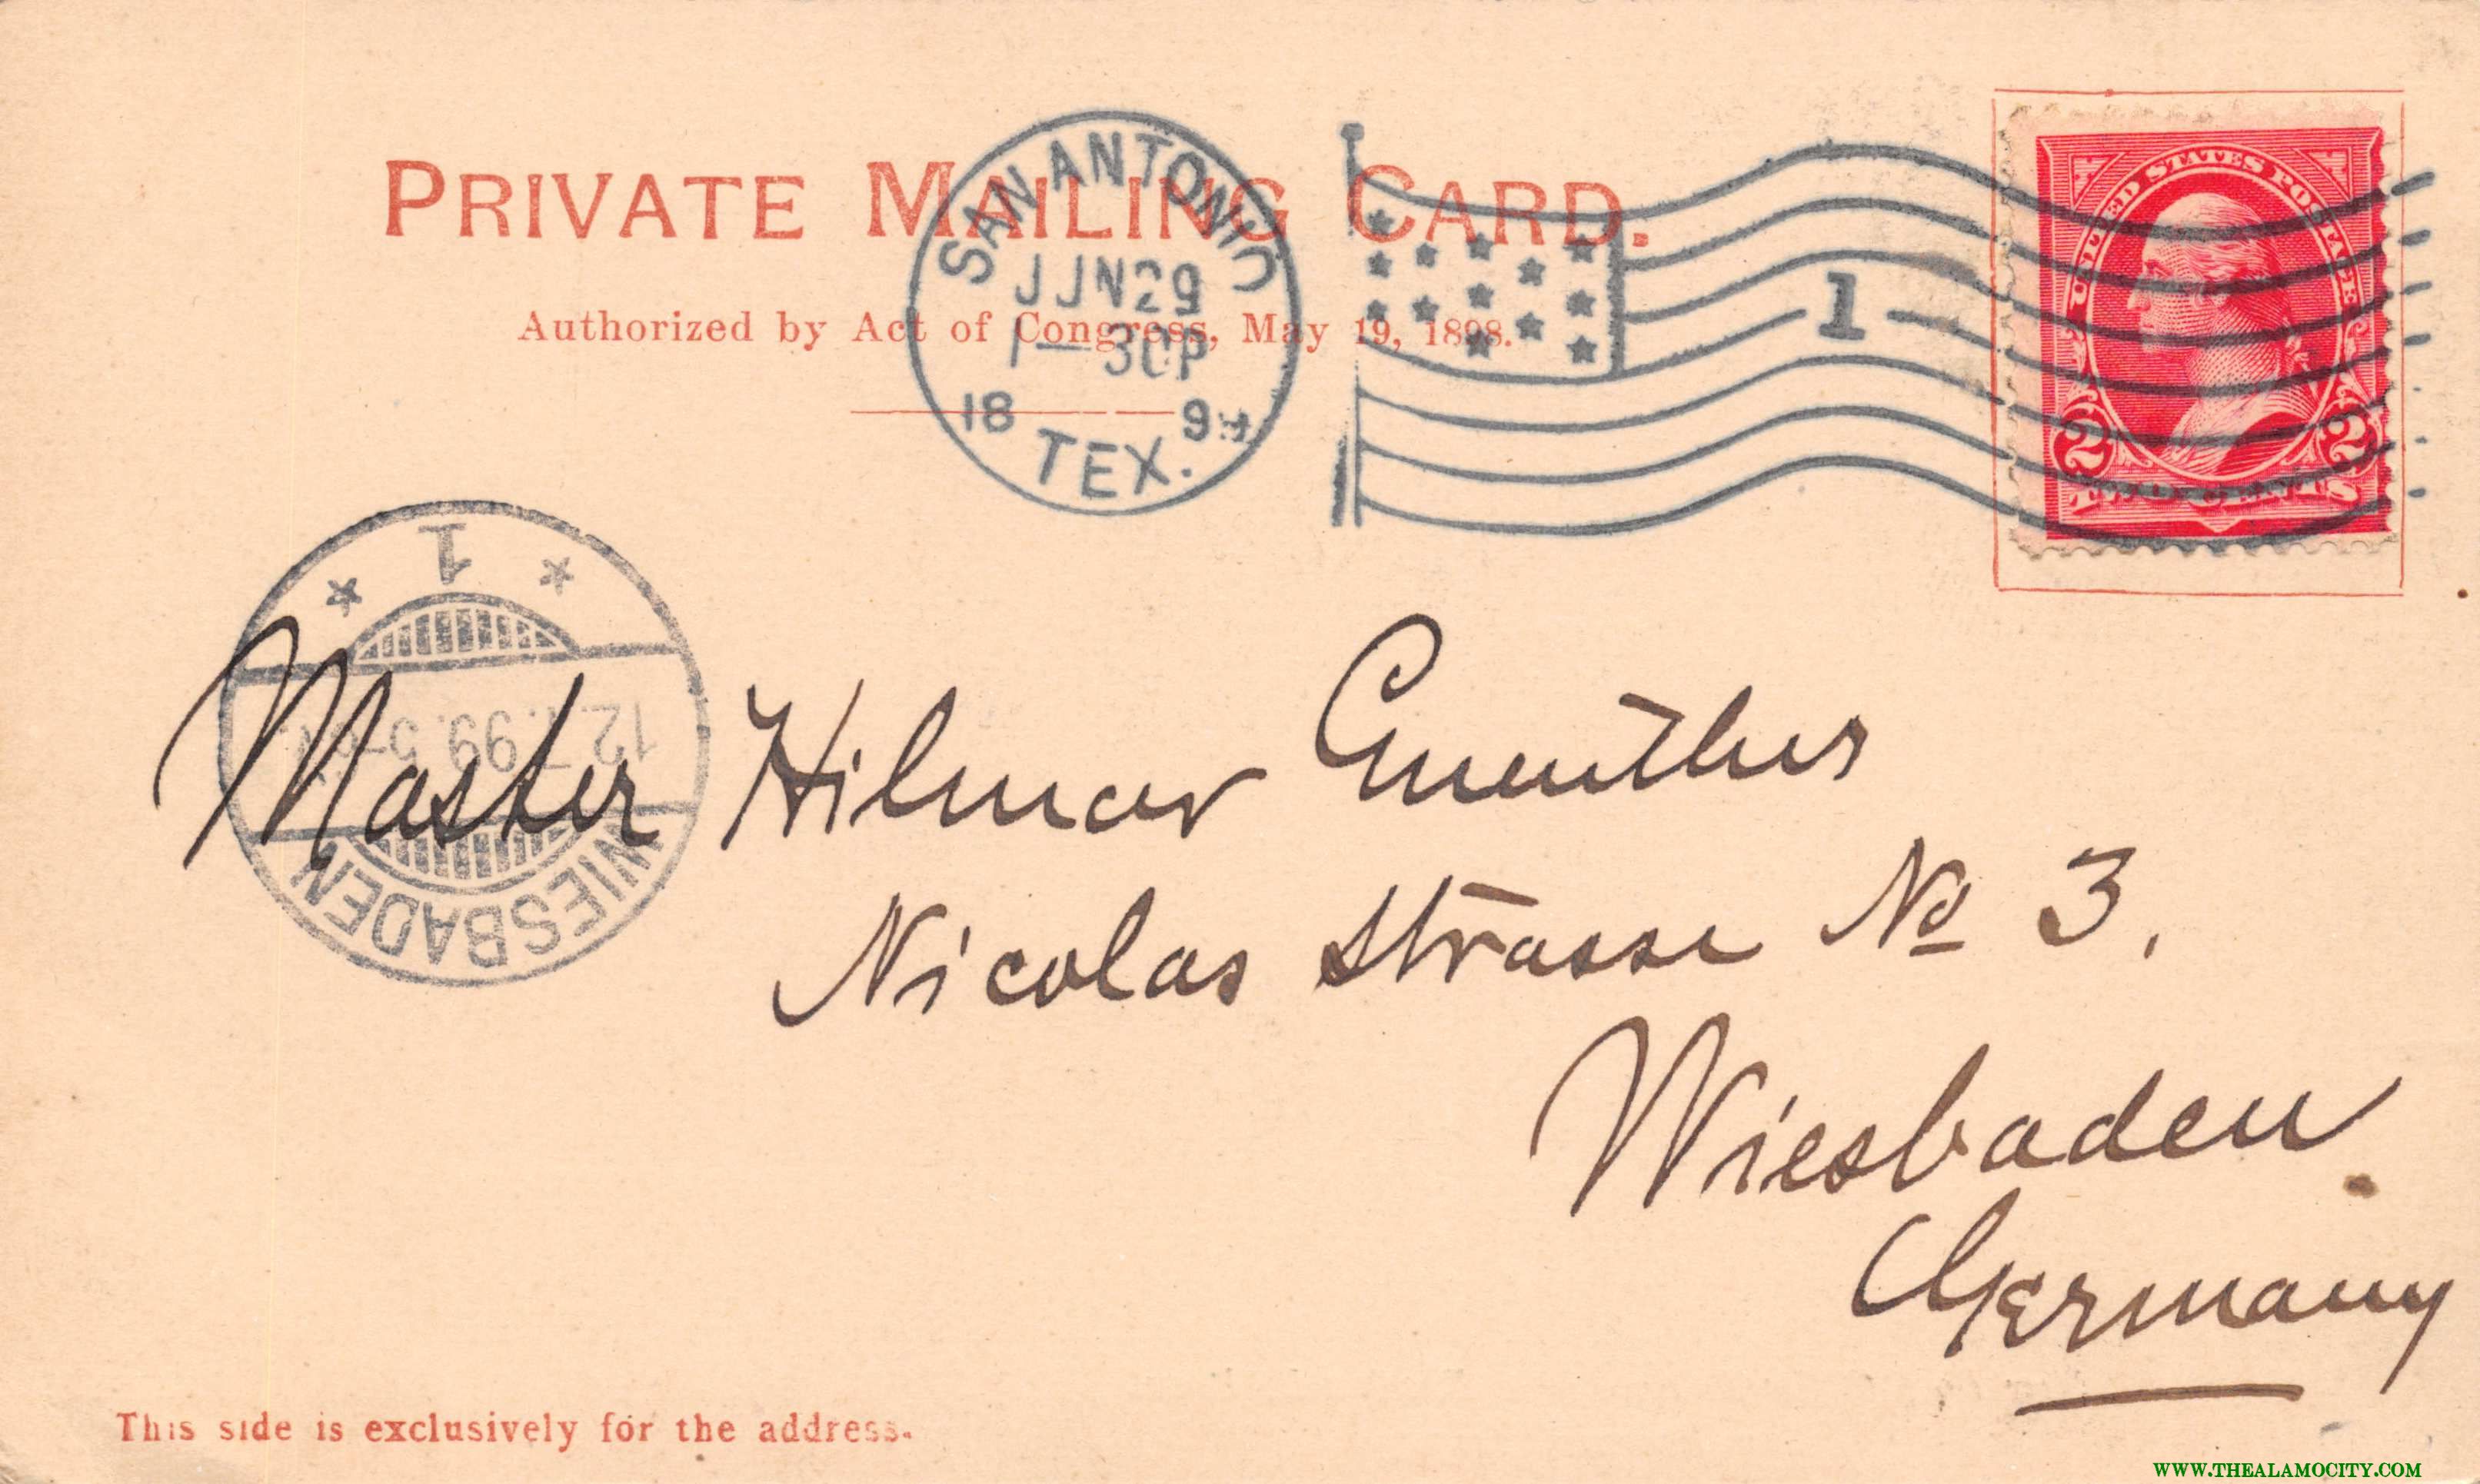 PRIVATE MAILING CARD.
Authorized by Act of Congress, May 19, 1898.
SAN ANTONIO
JUN 29
1-30P
18 99
TEX.
1
UNITED STATES POSTAGE
2 2
TWO CENTS
1
12.7.99.5-6N.
WIESBADEN
Master Hilmar Guenther
Nicolas Strasse No 3,
Wiesbaden
Germany
This side is exclusively for the address.
WWW.THEALAMOCITY.COM